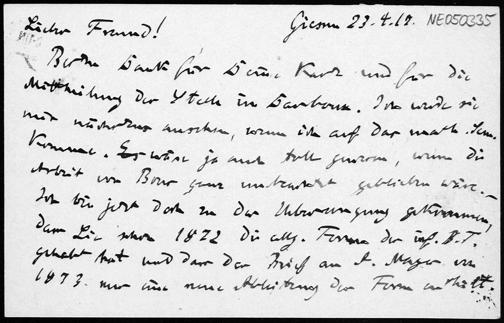 Lieber Freund! Giessen 23.4.17. NE050335
Besten Dank für Deine Karte und für die
Mittheilung der Stelle in Darboux. Ich werde sie
mir nächstens ansehen, wenn ich auf das math. Sem.
komme. Es wäre ja auch toll gewesen, wenn die
Arbeit von Bour ganz unbeachtet geblieben wäre. –
Ich bin jetzt doch zu der Ueberzeugung gekommen,
dass Lie schon 1872 die allg. Form der inf. B.T.
gehabt hat und dass der Brief an A. Mayer von
1873 nur eine neue Ableitung der Form enthält.